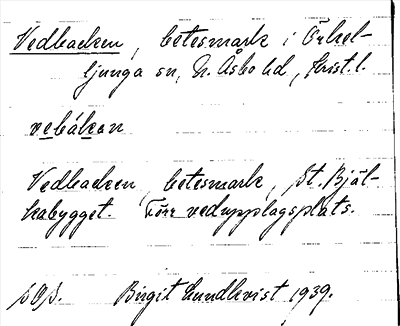 Vedbacken, betesmark i Örkel-
ljunga sn, N. Åsbo hd, Krist. l.
vebákan
Vedbacken, betesmark, St. Bjäl-
kabygget. Förr vedupplagsplats.
Birgit Lundkvist 1939.